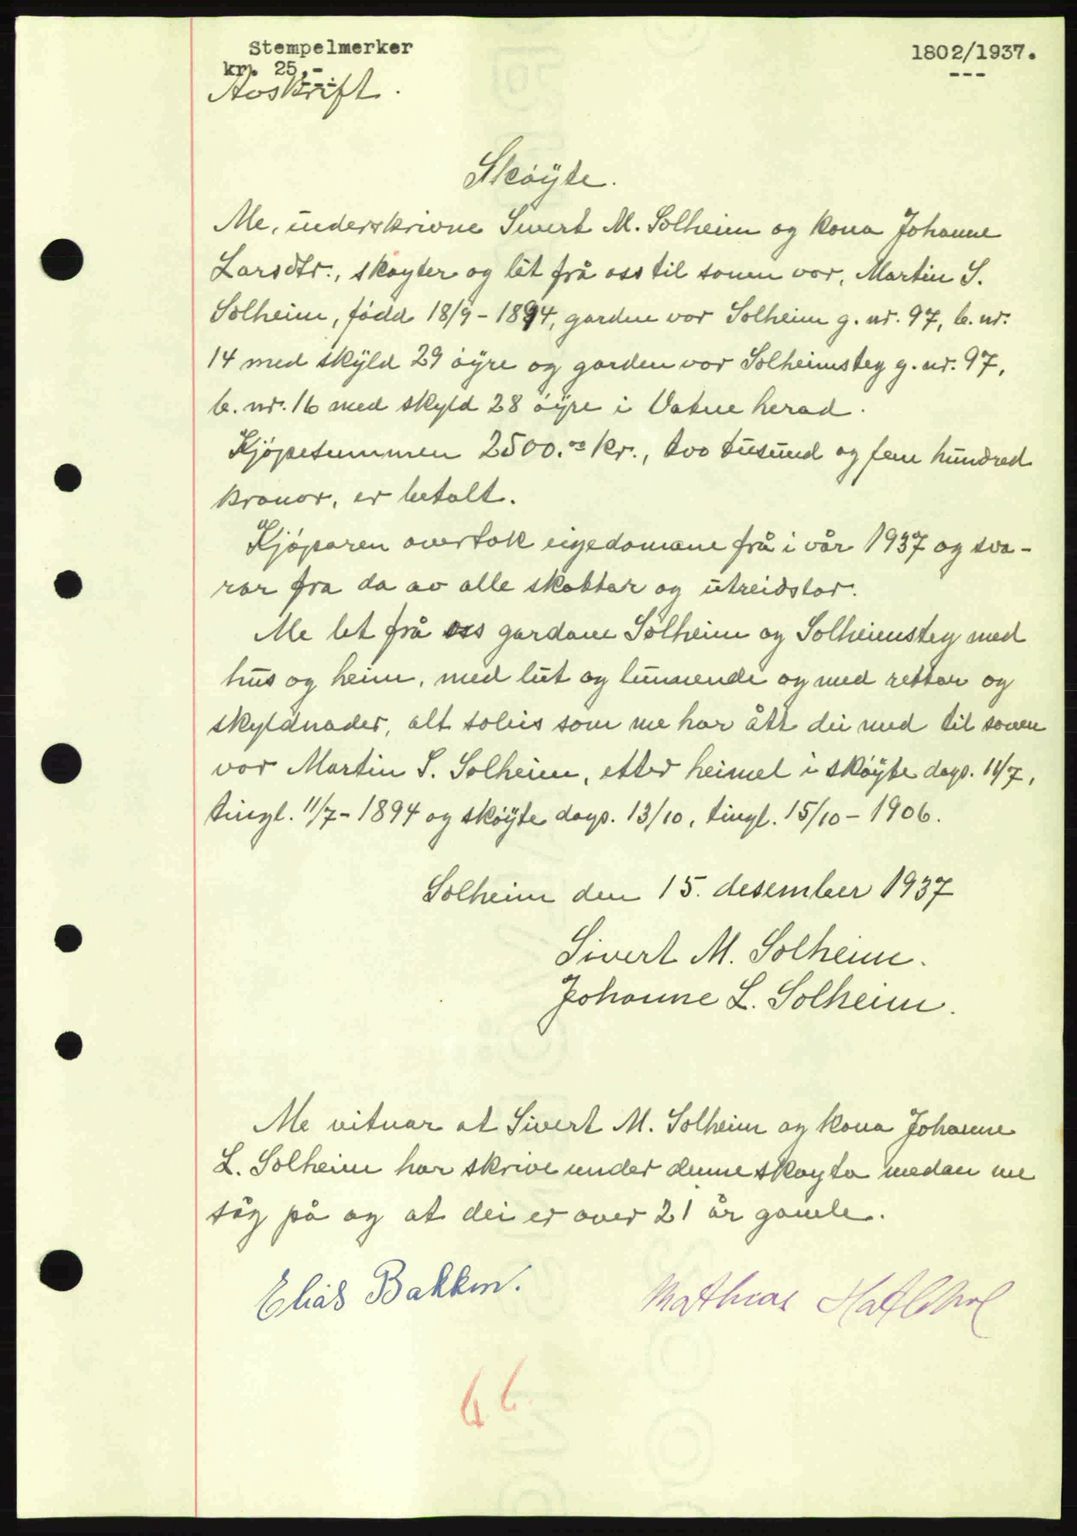 Stempelmerker
kr. 25,-
1802/1937.
---
Avskrift.
Skøyte.
Me, underskrivne Sivert M. Solheim og kona Johanne
Larsdtr., skøyter og lèt frå oss til sonen vor, Martin S.
Solheim, fødd 18/9-1894, garden vor Solheim g. nr. 97, b. nr.
14 med skyld 29 øyre og garden vor Solheimsteg g. nr. 97,
b. nr. 16 med skyld 28 øyre i Vatne herad.
Kjøpesummen 2500.00 kr., tvo tusund og fem hundred
kronor, er betalt.
Kjøparen overtok eigedomane frå i vår 1937 og sva-
rar fra da av alle skattar og utreidslor.
Me let frå oss gardane Solheim og Solheimsteg med
hus og heim, med lut og lunnende og med rettar og
skyldnader, alt soleis som me har ått dei med til sonen
vor Martin S. Solheim, etter heimel i skøyte dags. 11/7,
tingl. 11/7-1894 og skøyte dags. 13/10, tingl. 15/10-1906.
Solheim den 15. desember 1937
Sivert M. Solheim.
Johanne L. Solheim.
Me vitnar at Sivert M. Solheim og kona Johanne
L. Solheim har skrive under denne skøyta medan me
såg på og at dei er over 21 år gamle.
Elias Bakken.
Mathias Hatlehol